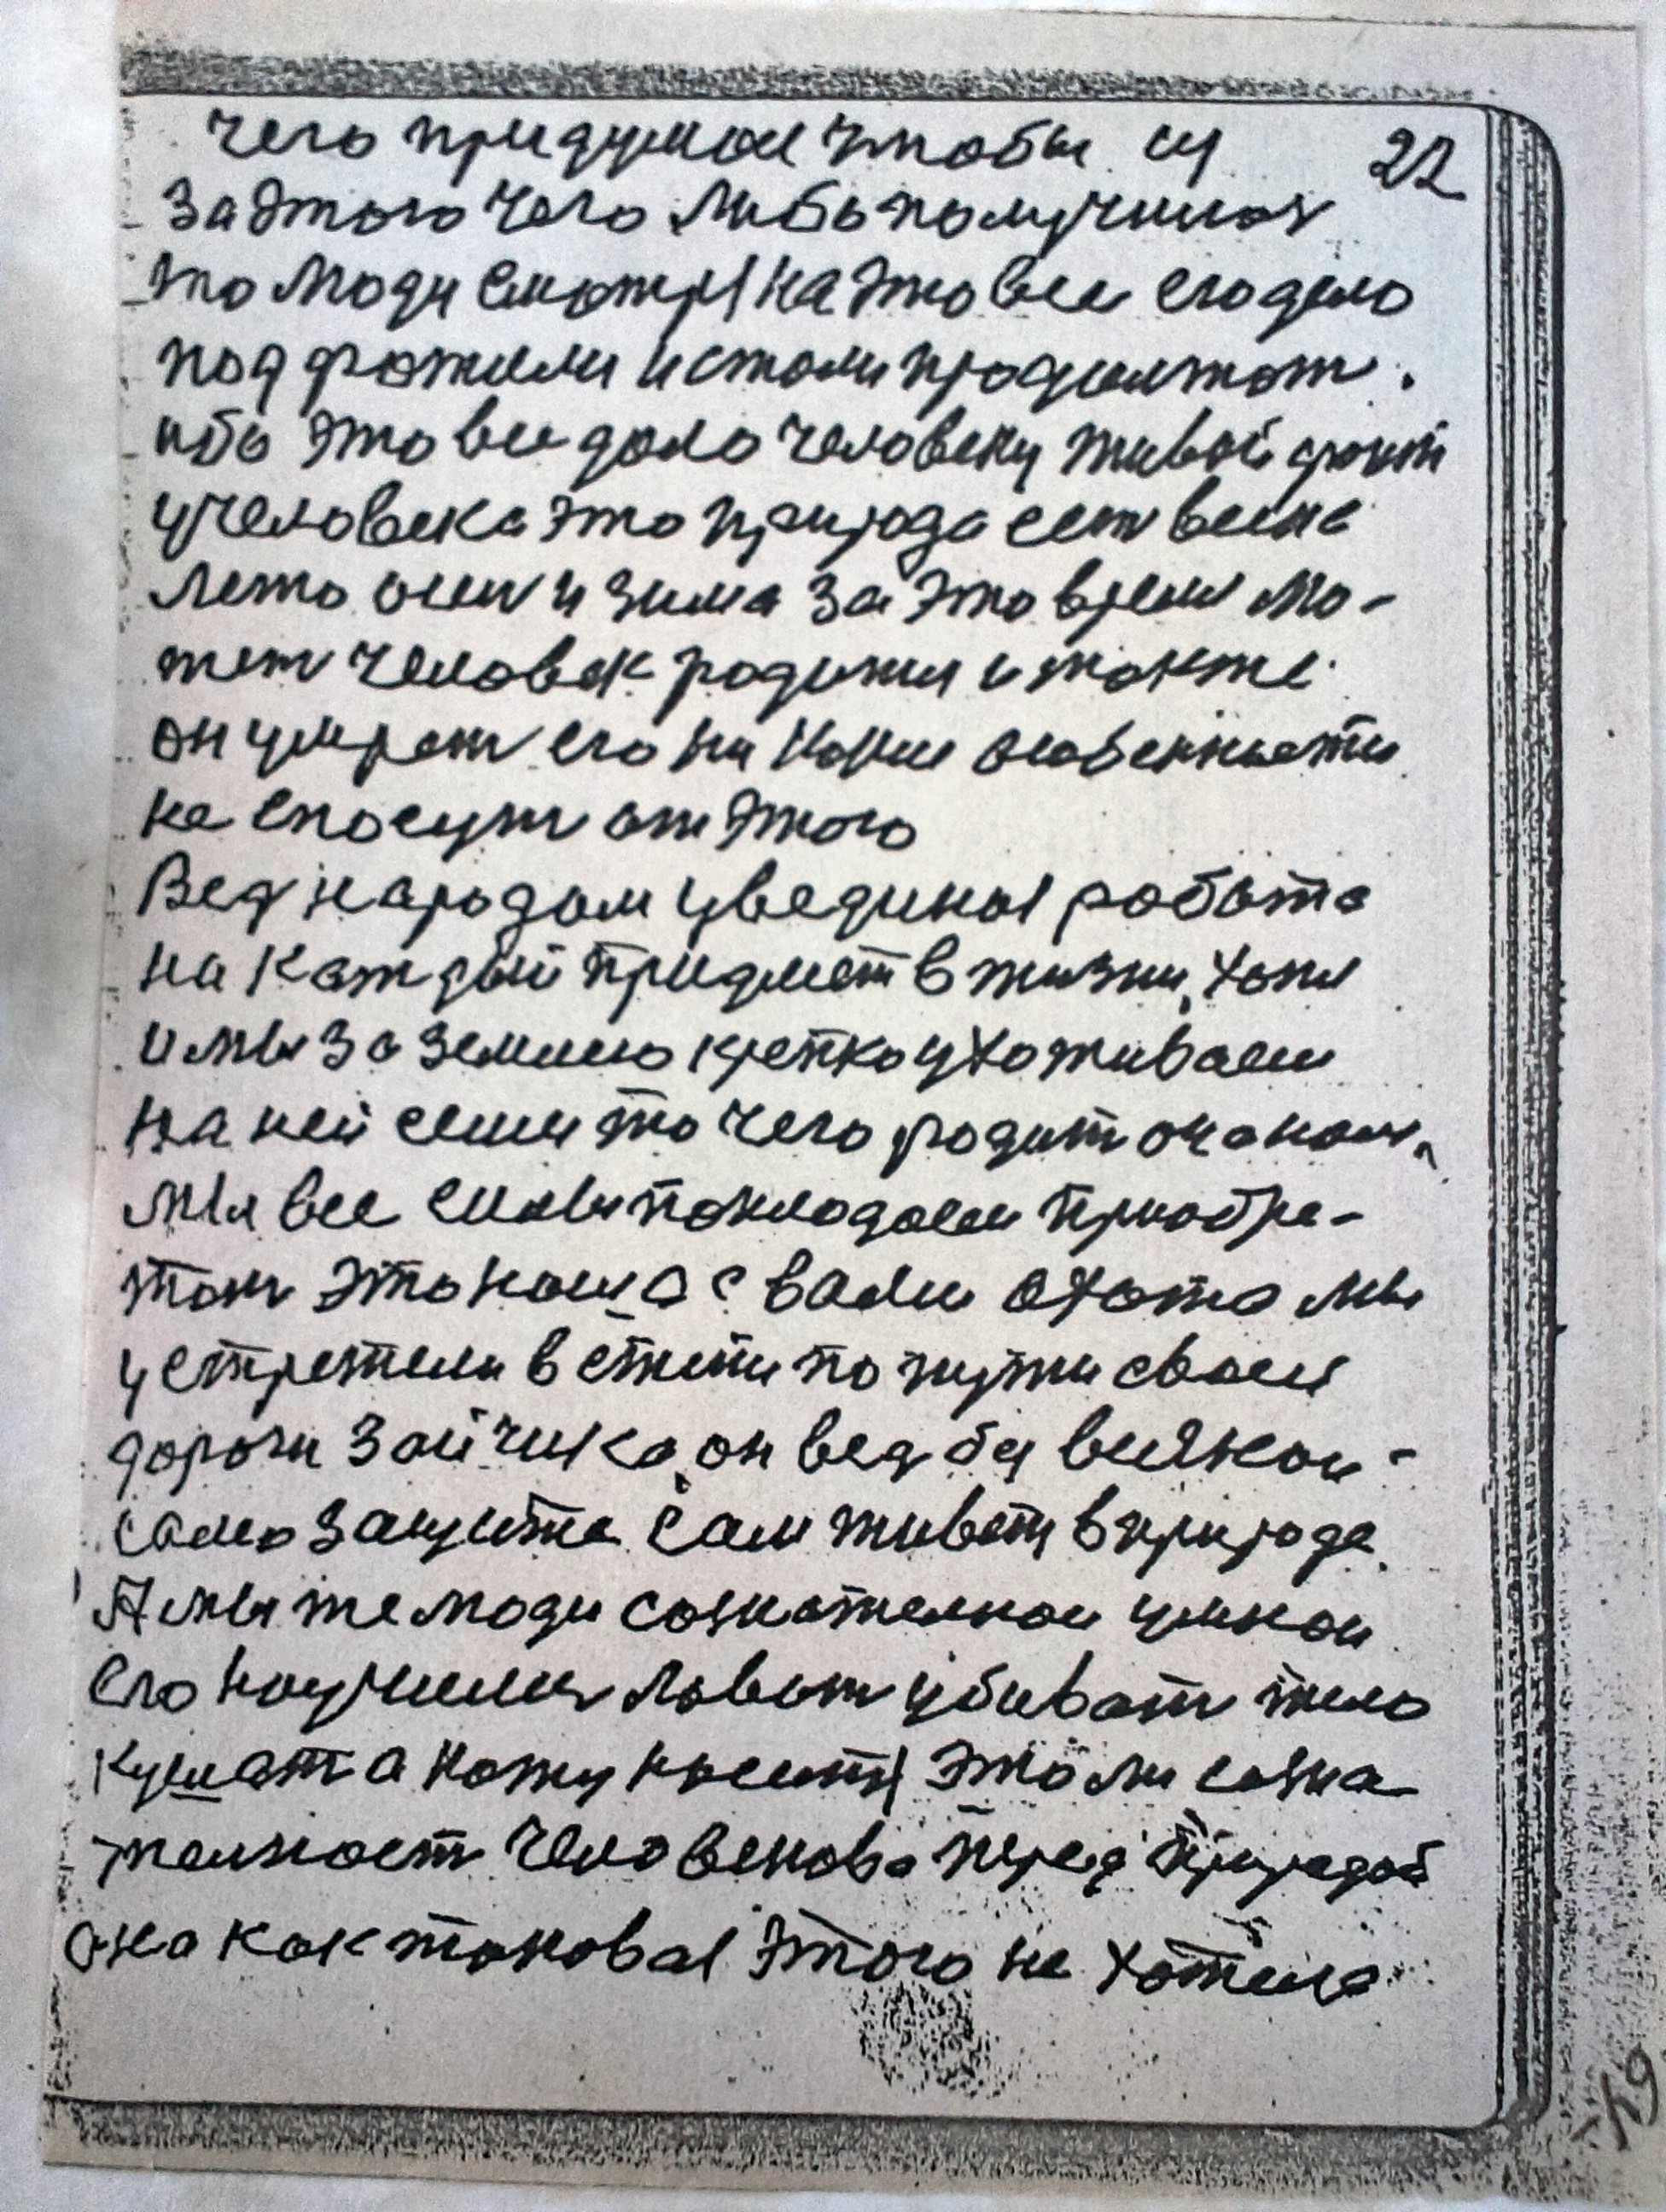 чего придумал чтобы из 22
за этого чего либо получилос
то люди смотря на это все его дело
подражали и стали продолжат.
ибо это все дало человеку живой факт
у человека это природа ест весна
лето осен и зима за это время мо-
жет человек родится и также
он умрет его ни какие особенности
не спосут от этого
Вед народам увединая работа
на каждый придмет в жизни, хотя
и мы за землею крепко ухаживаем
на ней сеим то чего родит она нам,
мы все силы покладаем приобре-
тат это наша с вами охота мы
устретели в степи по пути своей
дороги зайчика, он вед без всякой
само защиты сам живет в природе
А мы же люди сознателнои умнои
его научилис ловит убиват тело
кушат а кожу носитя это ли созна
телност человекова перед природой
она как таковая этого не хотела